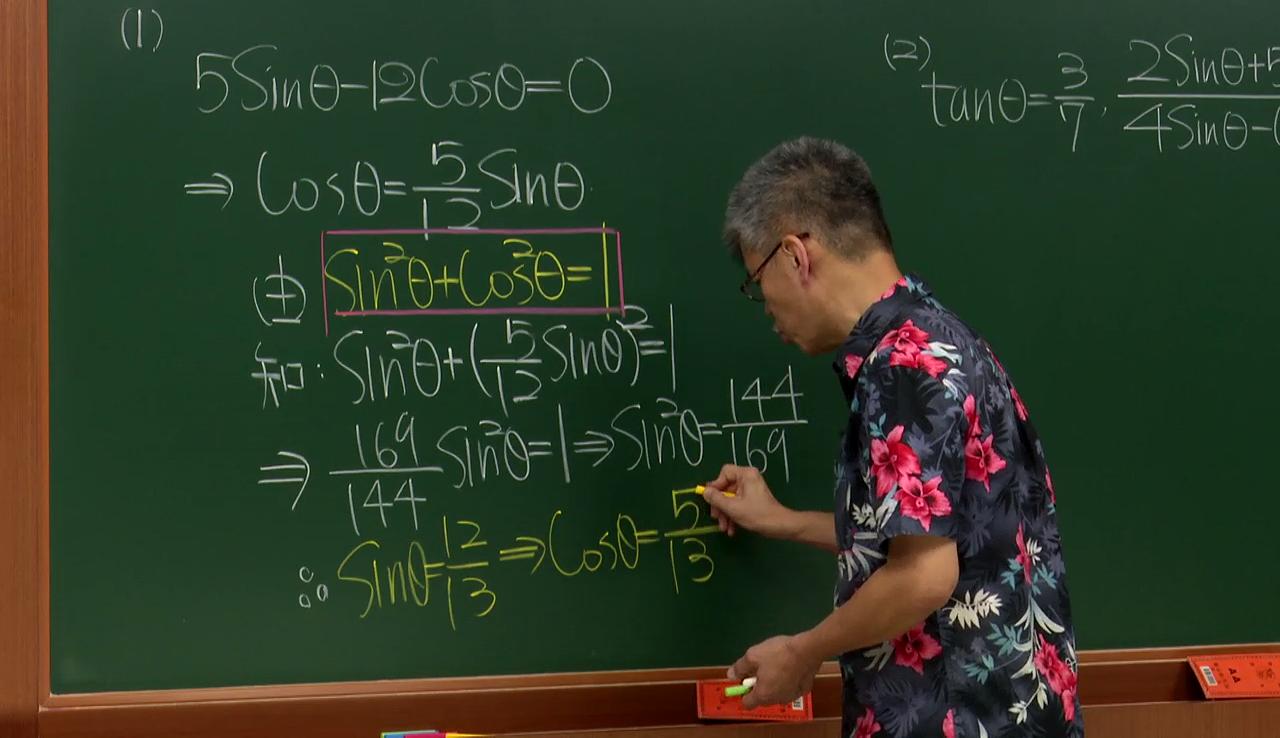 (1)
5Sinθ-12Cosθ=0
⇒ Cosθ=5/12 Sinθ
由 Sin²θ+Cos²θ=1
知: Sin²θ+(5/12 Sinθ)²=1
⇒ 169/144 Sin²θ=1⇒Sin²θ=144/169
∴ Sinθ=12/13 ⇒Cosθ=5/13
(2)
tanθ=3/7,
2Sinθ+5
4Sinθ-